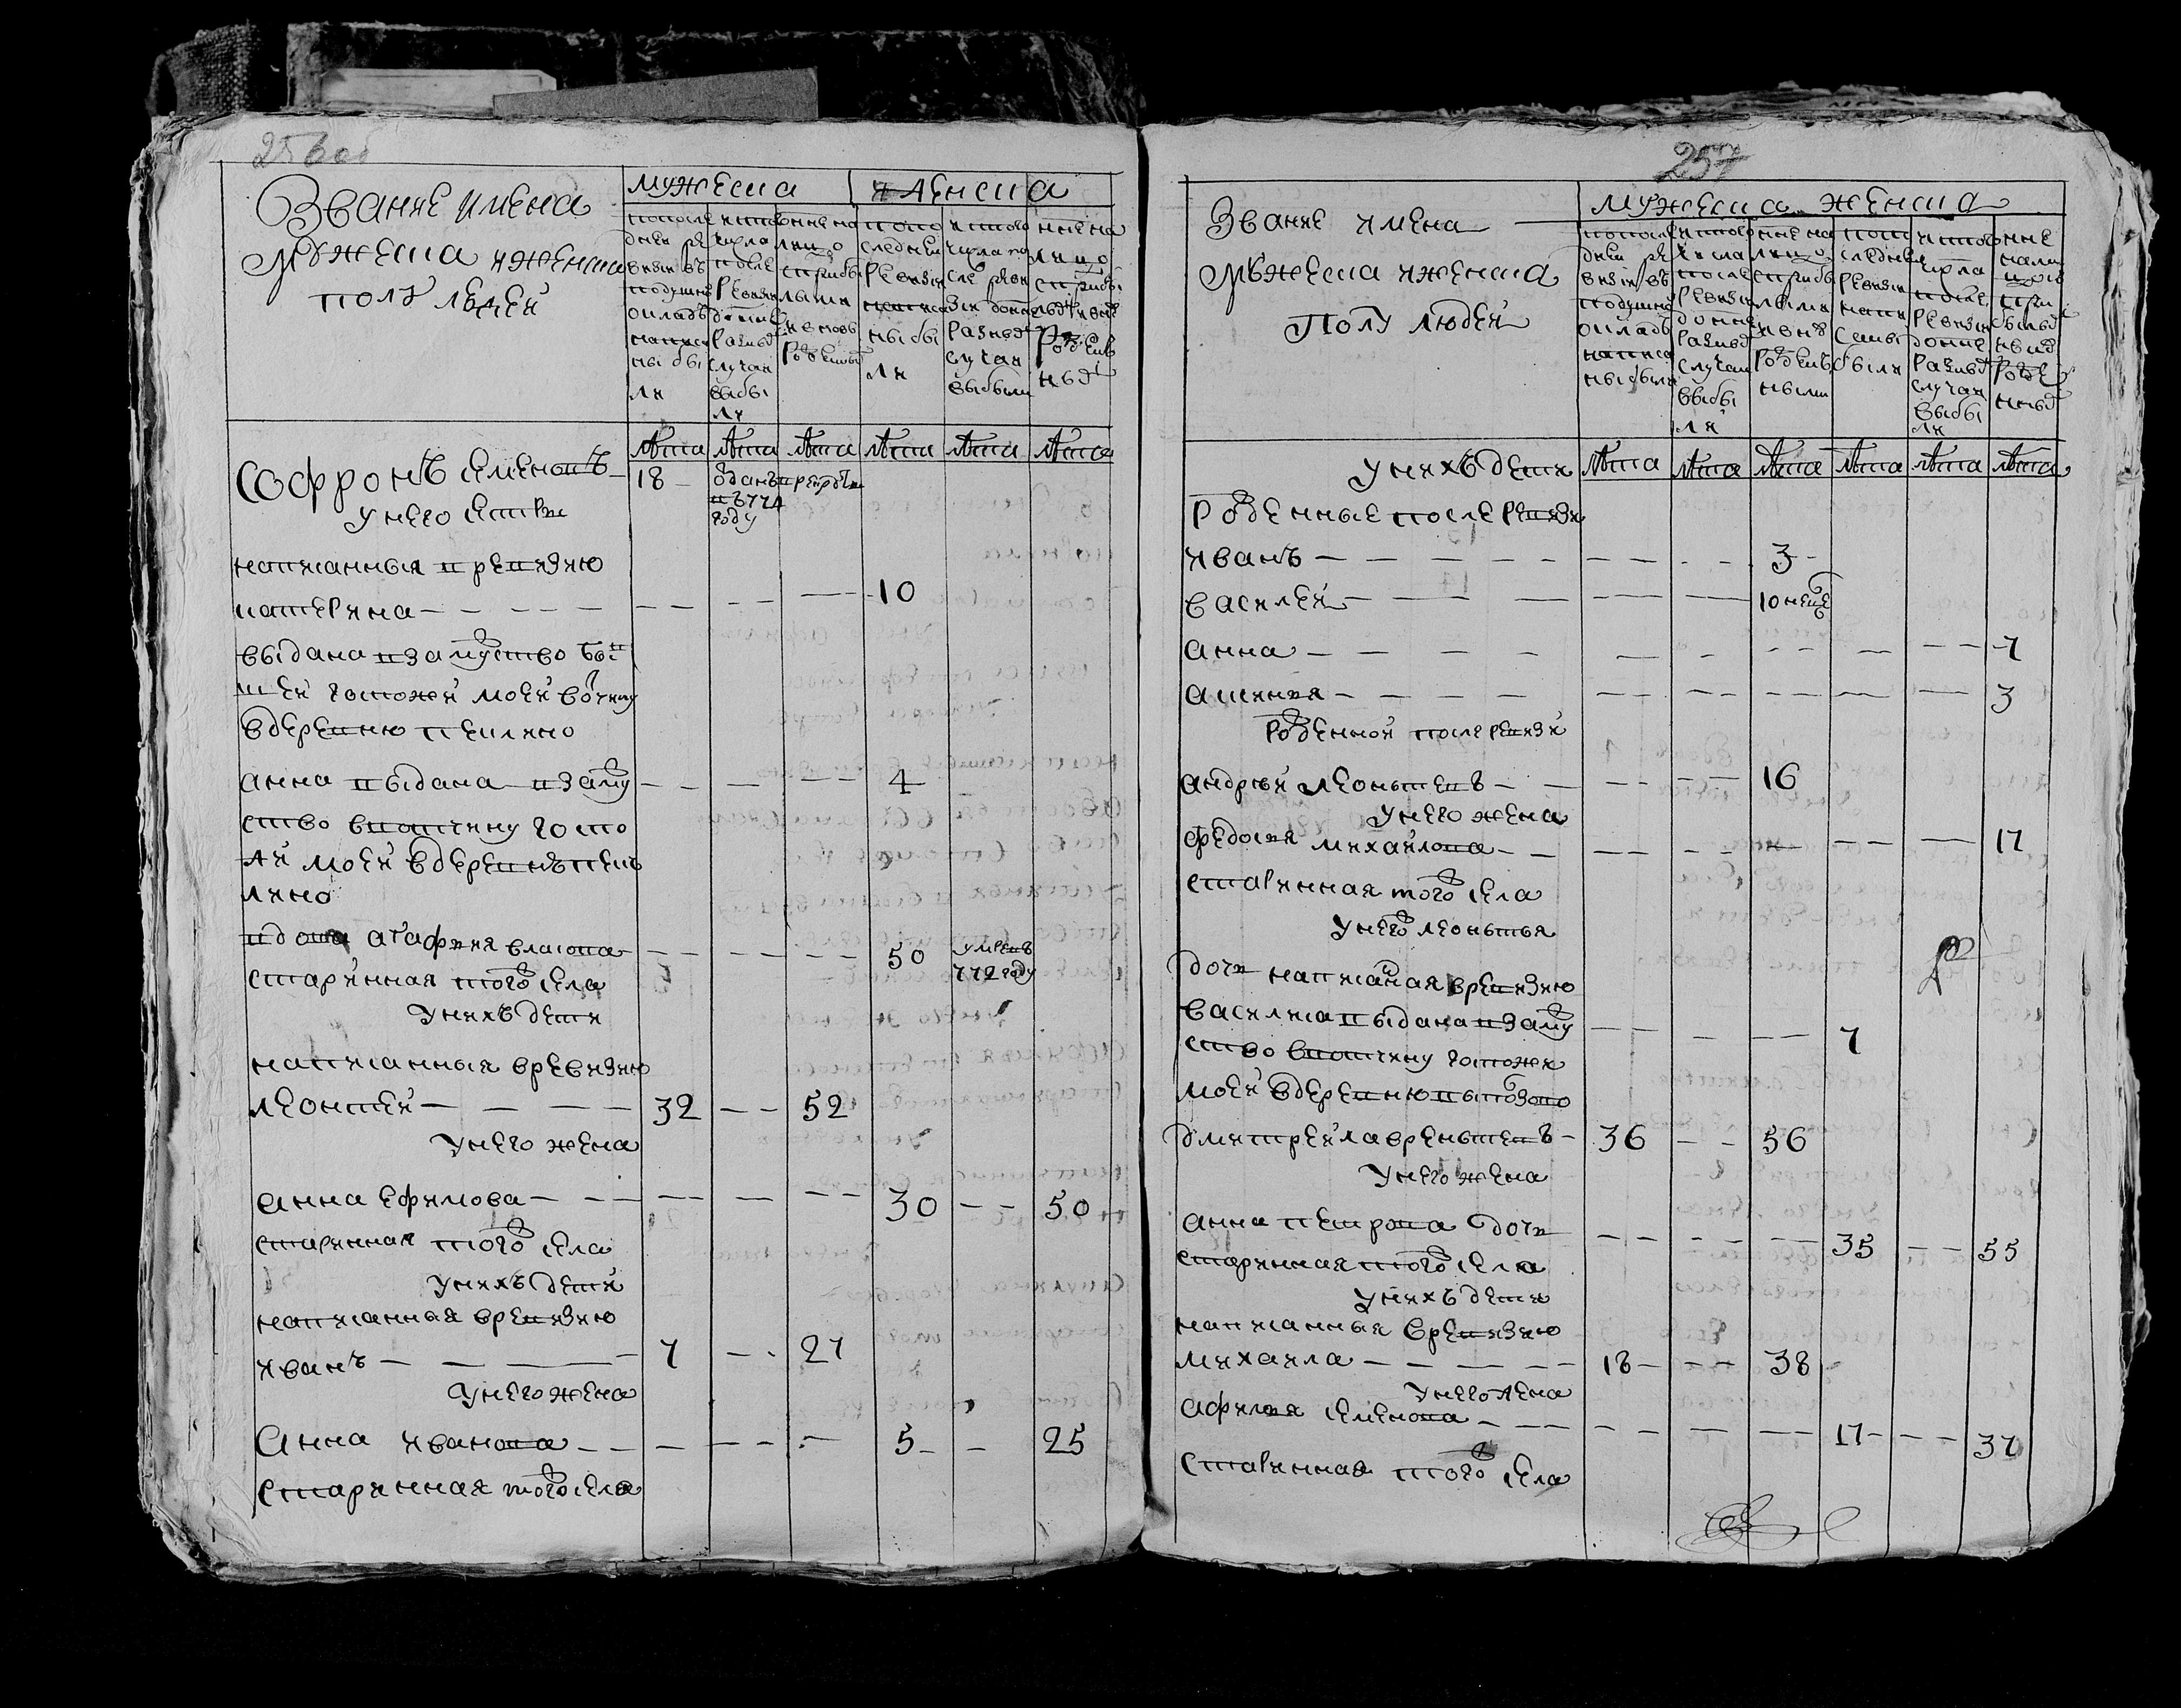 256 об
Званiе имена
мужеска иженска
полу людей
мужеска
женска
попосле
дней ре
визiи въ
подушно
окладъ
написа
ны бы
ли
изтого
числа
после
ревизи
Разныд
случаи
выбы
ли
ннена
лицо
сприбы
лыми
ивновь
рожденныд
попо
следней
ревизи
написа
ны бы
ли
изтого
числа по
сле реви
зи
разныд
случаи
выбыли
ннена
лицо
рожден
ныд
лета лета лета лета лета лета
софронъ семеновъ 18 отданъ врекруты
въ 774
году
унего сестры
написанныя вревизию
катерина 10
выдана взамужство
шей госпожей моей вотчину
вдеревню пеклино
анна выдана взаму 4
ство ввотчину госпо
жи моей вдеревнъ пек
лино
вдова агафия власова 50 умре въ
772 году
старинная того села
унихъ дети
написанныя вревизию
леонтей 32 52
унего жена
анна ефимова 30 50
старинная того села
унихъ дети
написанныя вревизию
иванъ 7 27
унего жена
анна иванова 5 25
старинная того села
257
Званiе имена
мужеска иженска
полу людей
мужеска женска
попосле
дней ре
визiи въ
подушно
окладъ
написа
ны были
изтого
числа
после
ревизи
разныд
случаи
выбы
ли
ннена
лицо
сприбы
лыми
ивнов
рожден
ными
последне
ревизи
напи
саны
были
изтого
числа
после
ревизи
разныд
случаи
выбы
ли
нне
нали
цо
при
былыд
рожде
нныд
унихъ дети лета лета лета лета лета лета
рожденные после ревизи
иванъ 3
василей 10 недел
анна 7
аксинья 3
рожденной после ревизи
андрей леонтьевъ 16
унего жена
федосия михайлова 17
старинная того села
унего леонтья
дочь написаная вревизию
василиса выдана взаму 7
ство ввотчину госпожи
моей вдеревню
дмитрей лаврентьевъ 36 56
унего жена
анна петрова дочь 35 55
старинная того села
унихъ дети
написанныя вревизию
михаила 18 38
унего жена
афимья семенова 17 37
старинная того села